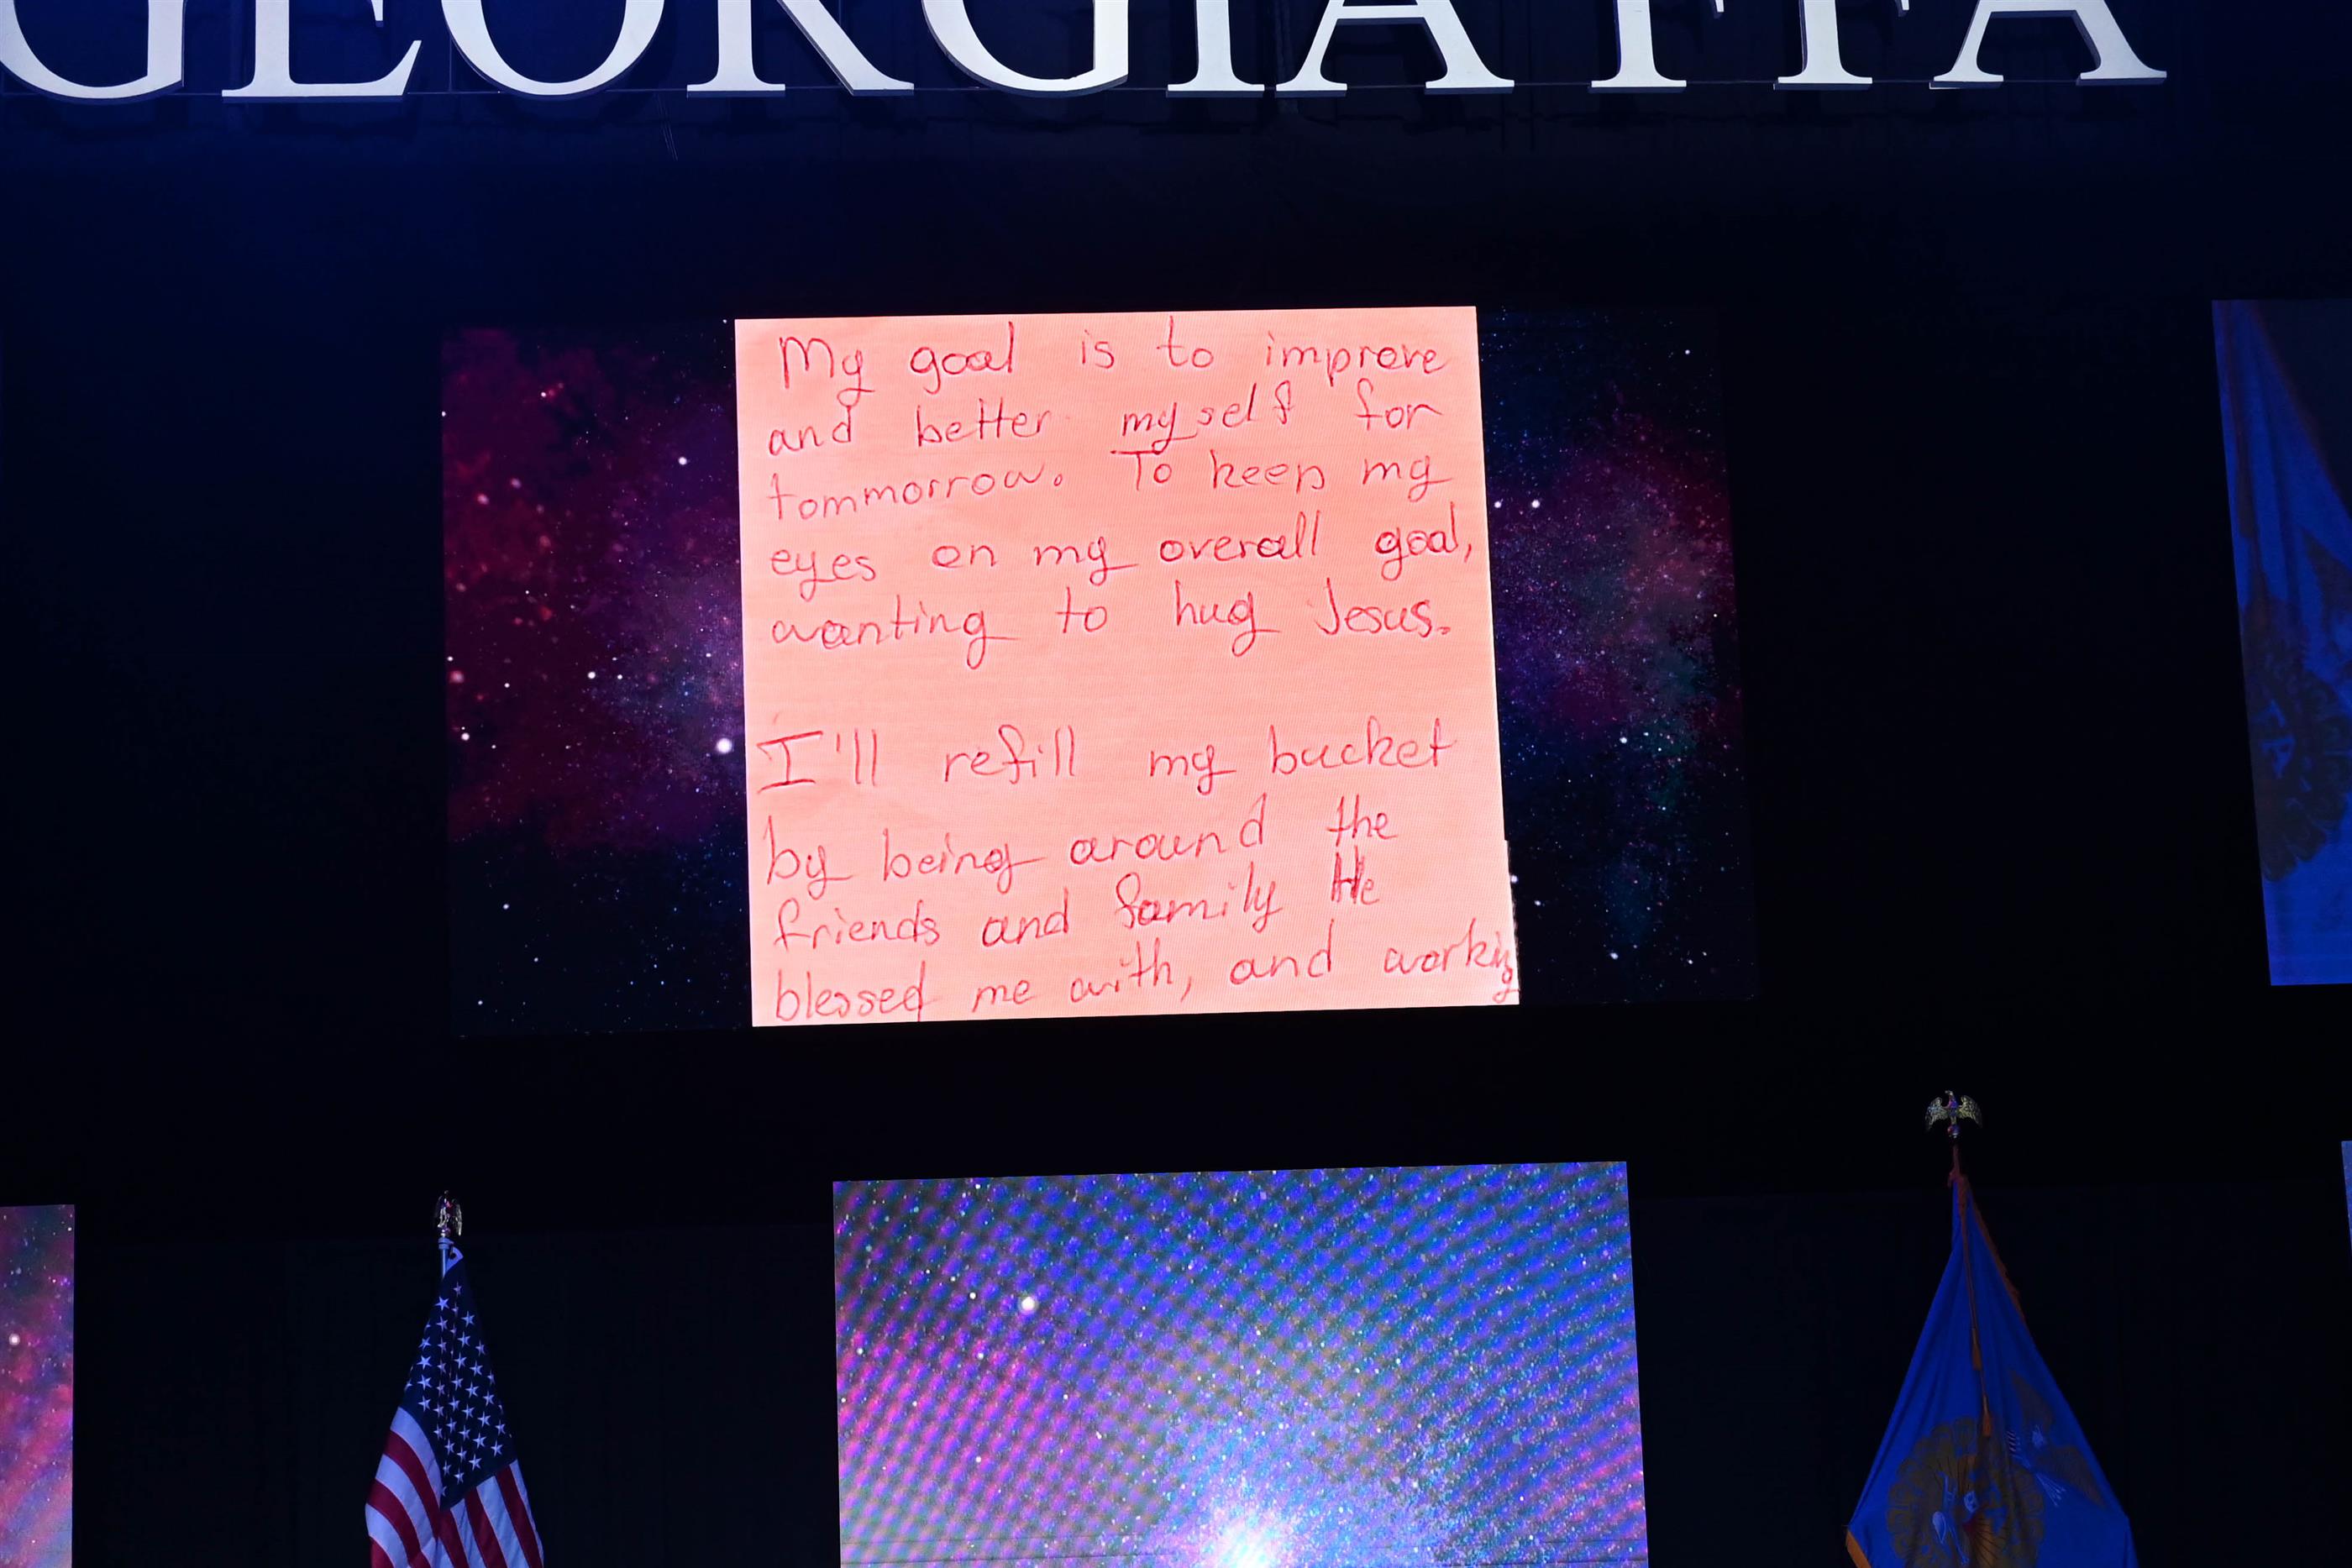 GEORGIA FFA
My goal is to improve
and better myself for
tommorrow. To keep my
eyes on my overall goal,
wanting to hug Jesus.
I'll refill my bucket
by being around the
friends and family He
blessed me with, and working